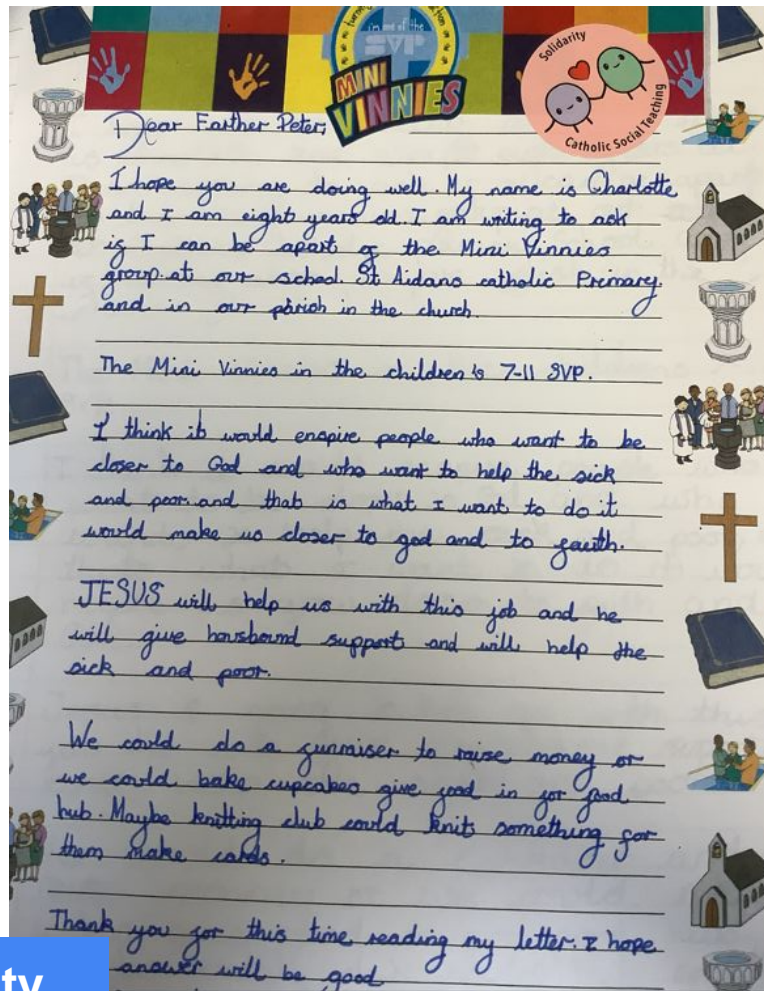 in one of the
SVP
MINI
VINNIES
Solidarity
Catholic Social Teaching
Dear Farther Peter,
I hope you are doing well. My name is Charlotte
and I am eight years old. I am writing to ask
if I can be apart of the Mini Vinnies
group at our school. St Aidans catholic Primary
and in our parish in the church.
The Mini Vinnies in the children's 7-11 SVP.
I think it would enspire people who want to be
closer to God and who want to help the sick
and poor and that is what I want to do it
would make us closer to god and to faith.
JESUS will help us with this job and he
will give housbound support and will help the
sick and poor.
We could do a funraiser to raise money or
we could bake cupcakes give food in for food
hub. Maybe knitting club could knit something for
them make cards.
Thank you for this time reading my letter. I hope
answer will be good
ty